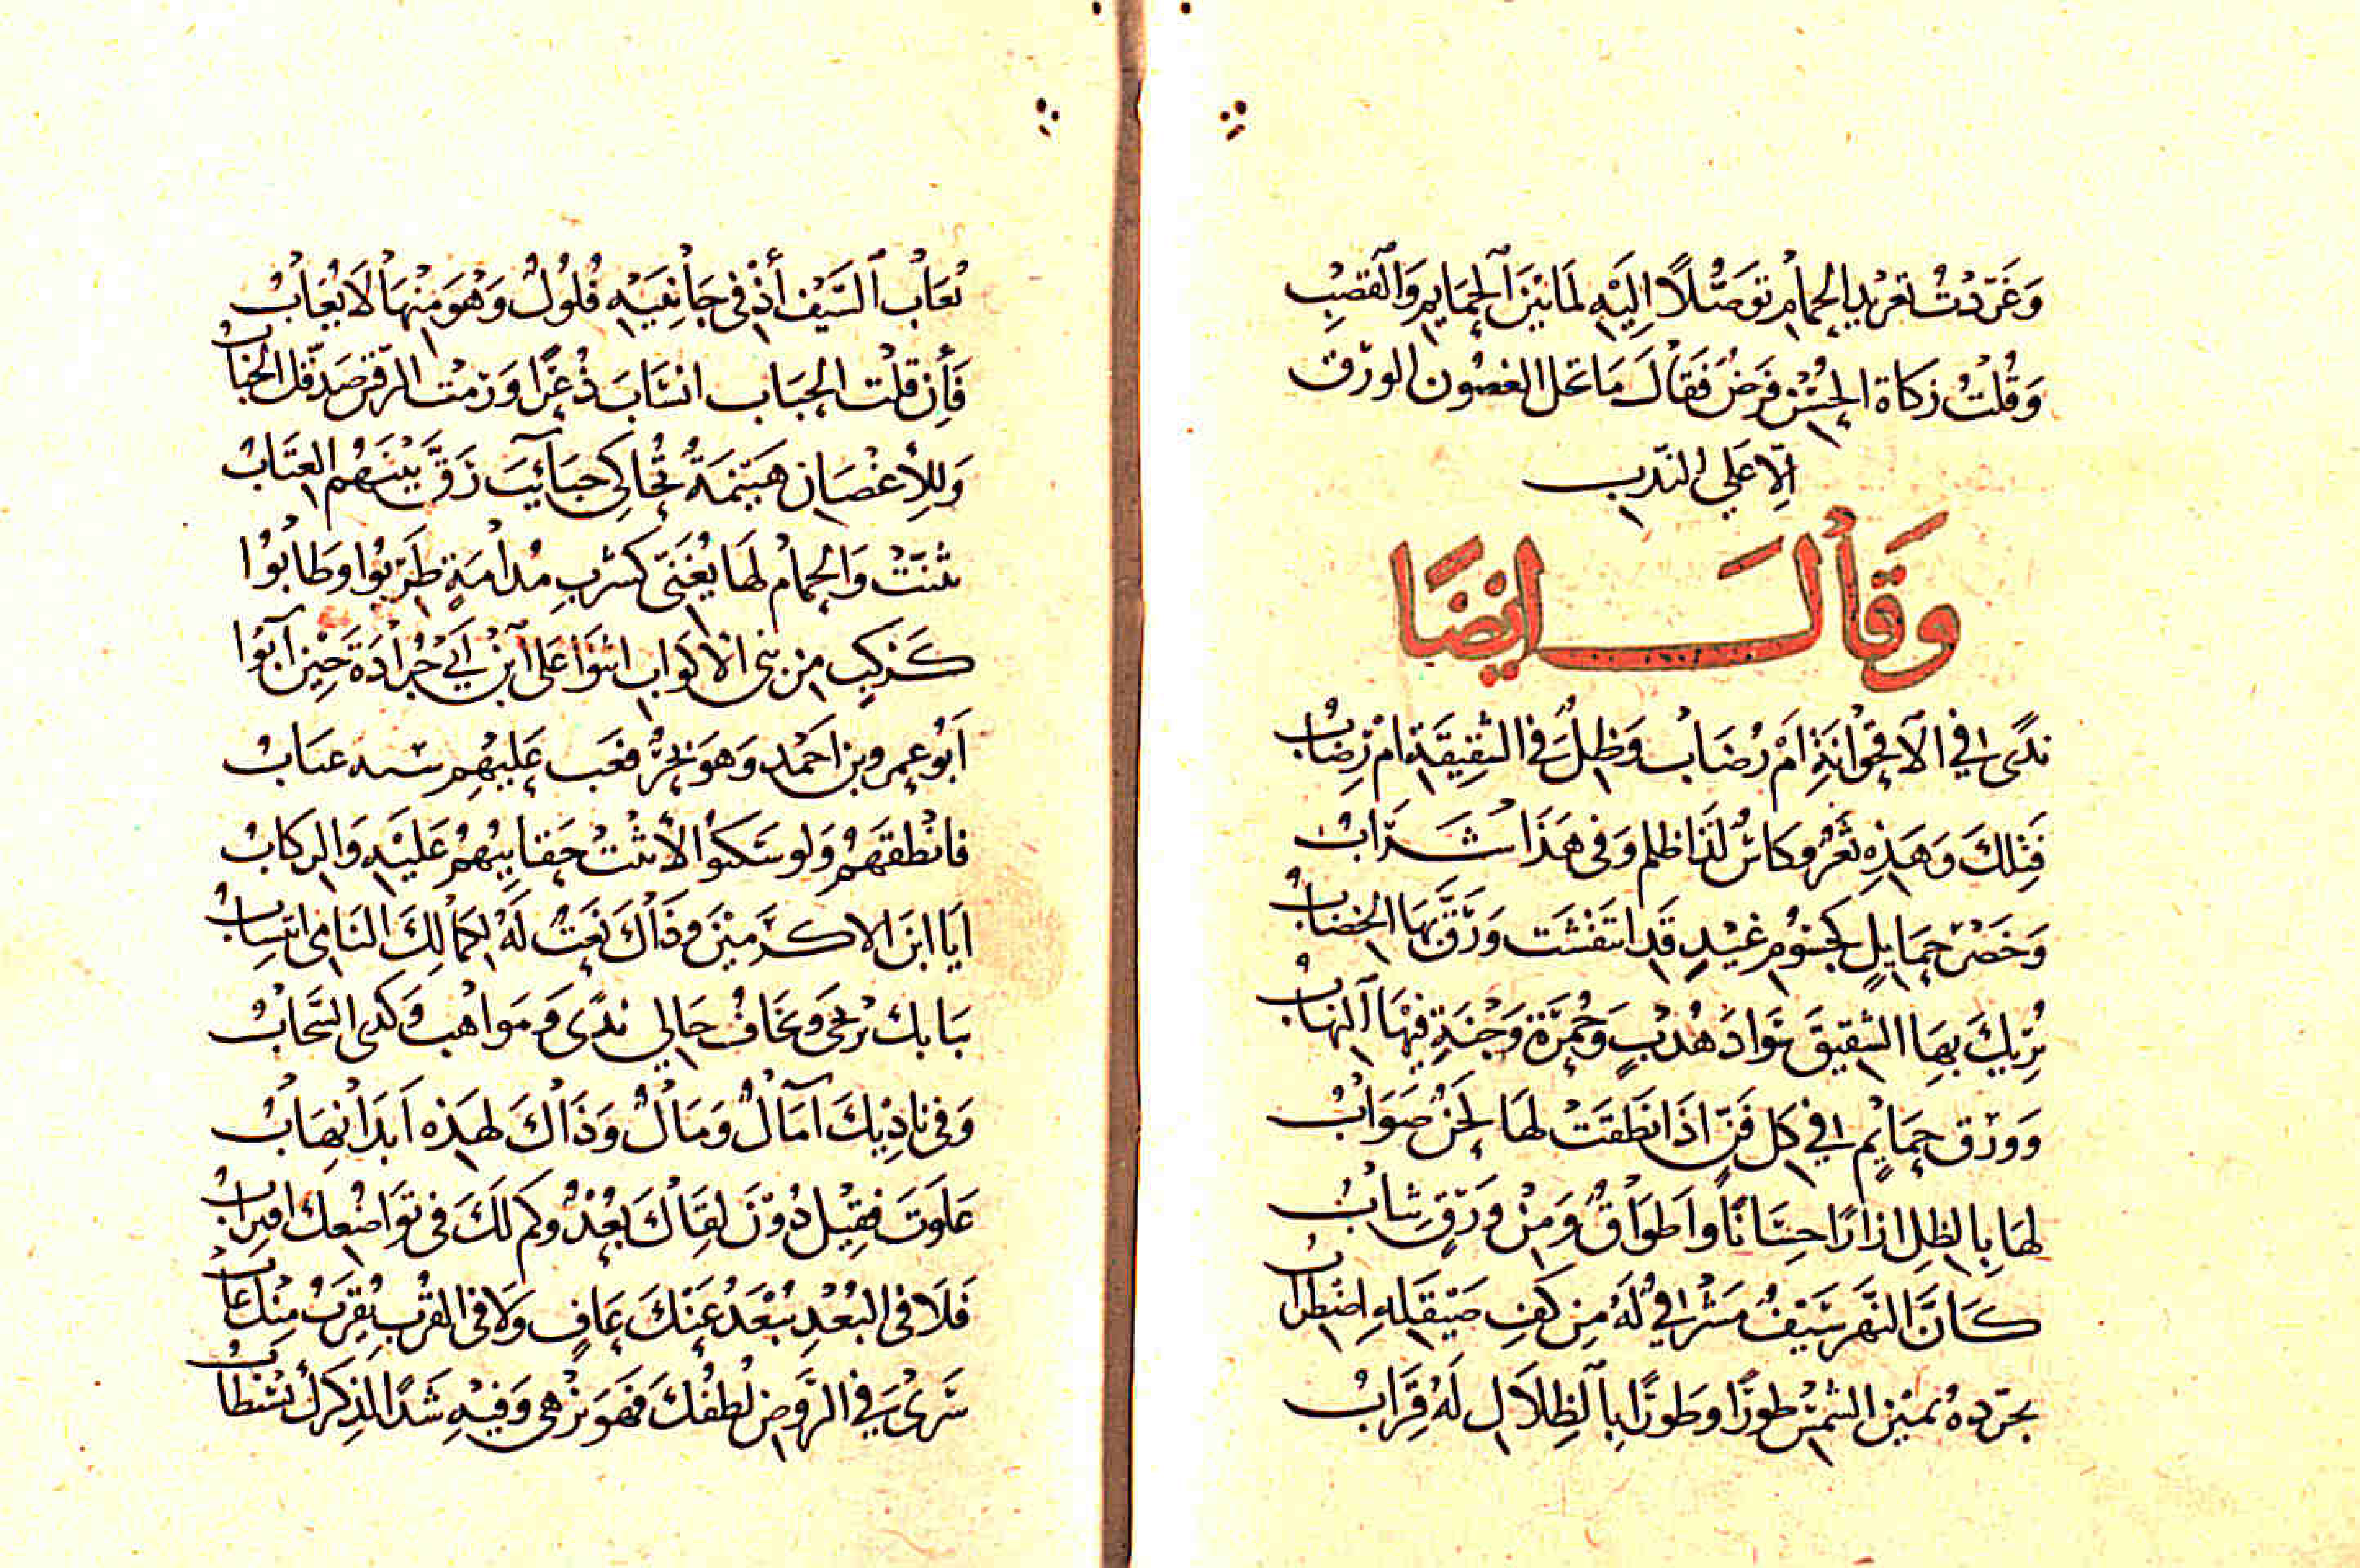 وَغَرَّدْتُ تغريد الحمام توصّلًا إِلَيْهِ لمَا بَيْنَ الحمَايم وَالقضْبِ
وَقُلْتُ زكاة الحُسْن فرَضٌ فَقالَ مَا تحمل الغصُون الورق
اِلّا عَلي الندب
وَقَالَ ايْضًا
ندًى في الأقحُوانَةِ امْ رُضَابُ وَظِلٌّ في الشقِيقَةِ ام رِضابُ
فَتِلكَ وَهَذِهِ ثَغْرٌ وكاسٌ لذَا ظلم وَفي هَذَا شَرَابُ
وَخَضْر حمَايلٍ كجسُوم غيْدٍ قَد انتقشت وَرَقَّ بهَا الخضابُ
يُرِيكَ بهَا الشقيقَ سَوادَ هُدْبٍ وَحُمْرَةَ وَجْنَةٍ فيهَا الهابُ
وَوُرْق حمَايمٍ في كل فَنّ اذَا نطَقَتْ لهَا لحْنٌ صَوَابُ
لهَا بِالظل ازارًا حِسَانًا واَطوَاقٌ وَمِنْ وَرَقٍ ثِيابُ
كانَّ النهْر سَيْفٌ مشْرَفيٌّ لَهُ مِن كفِ صَيْقَلِهِ اضْطرابُ
يجرّدهُ يمين الشمْس طورًا وطورًا بِالظِلاَلِ لَهُ قِرَابُ
يُعَابُ السَّيْف أذْ في جَانِبَيْهِ فُلُولٌ وَهْوَ مِنْهَا لَا يُعَابُ
فَأِن قلت الحُبَاب انسَابَ ذُعْرًا وَرمْت الرّقش صَدّقك الحُبابُ
وَلِلأغْصَان هَيْنمَةٌ تُحَاكي حبَائبَ رَقَّ بَيْنَهُم العتَابُ
تثنّتْ وَالحمامُ لهَا يُغَنّي كشَرْبِ مُدامَةٍ طَرِبُوا وطَابُوا
كرَكبٍ من بني الاكوَابِ اثنَوْا عَلى ابْن اَبي جُرَادَةَ حِيْن آبُوا
اَبُو عمرو بن احْمَد وَهوَ بحْرٌ فعَب عَليهِم عبَابُ
فانْطقَهُمْ وَلو سَكَتُوا لأثْنتْ حَقايبُهُمْ عَليْهِ وَالركابُ
اَيَا ابنَ الاكرَمِيْنَ وَذَاكَ نعْتٌ لَهُ لكمَالِكَ النَامي انتِسَابُ
ببَابك نُرْجَى وَنخَافُ حَالي ندًى وَمَواهب وَكدَى السَّحَابُ
وَفي نادِيْكَ آمَالٌ وَمَالٌ وَذَاكَ لهَذِهِ اَبدَا نِهَابُ
عَلَوتَ فقِيْل دُوْنَ لقَاكَ بُعْدٌ وكم لَكَ في تَوَاضُعِك اقترابُ
فَلَا في البُعْدِ يَبْعَدُ عَنْكَ عَافٍ ولَا في القرْبِ يَقرَبُ مِنْك عابُ
سَرى في الرَّوض لُطفُكَ فَهوَ يزْهى وَفيْهِ شَذًا لذِكرك يُستطابُ